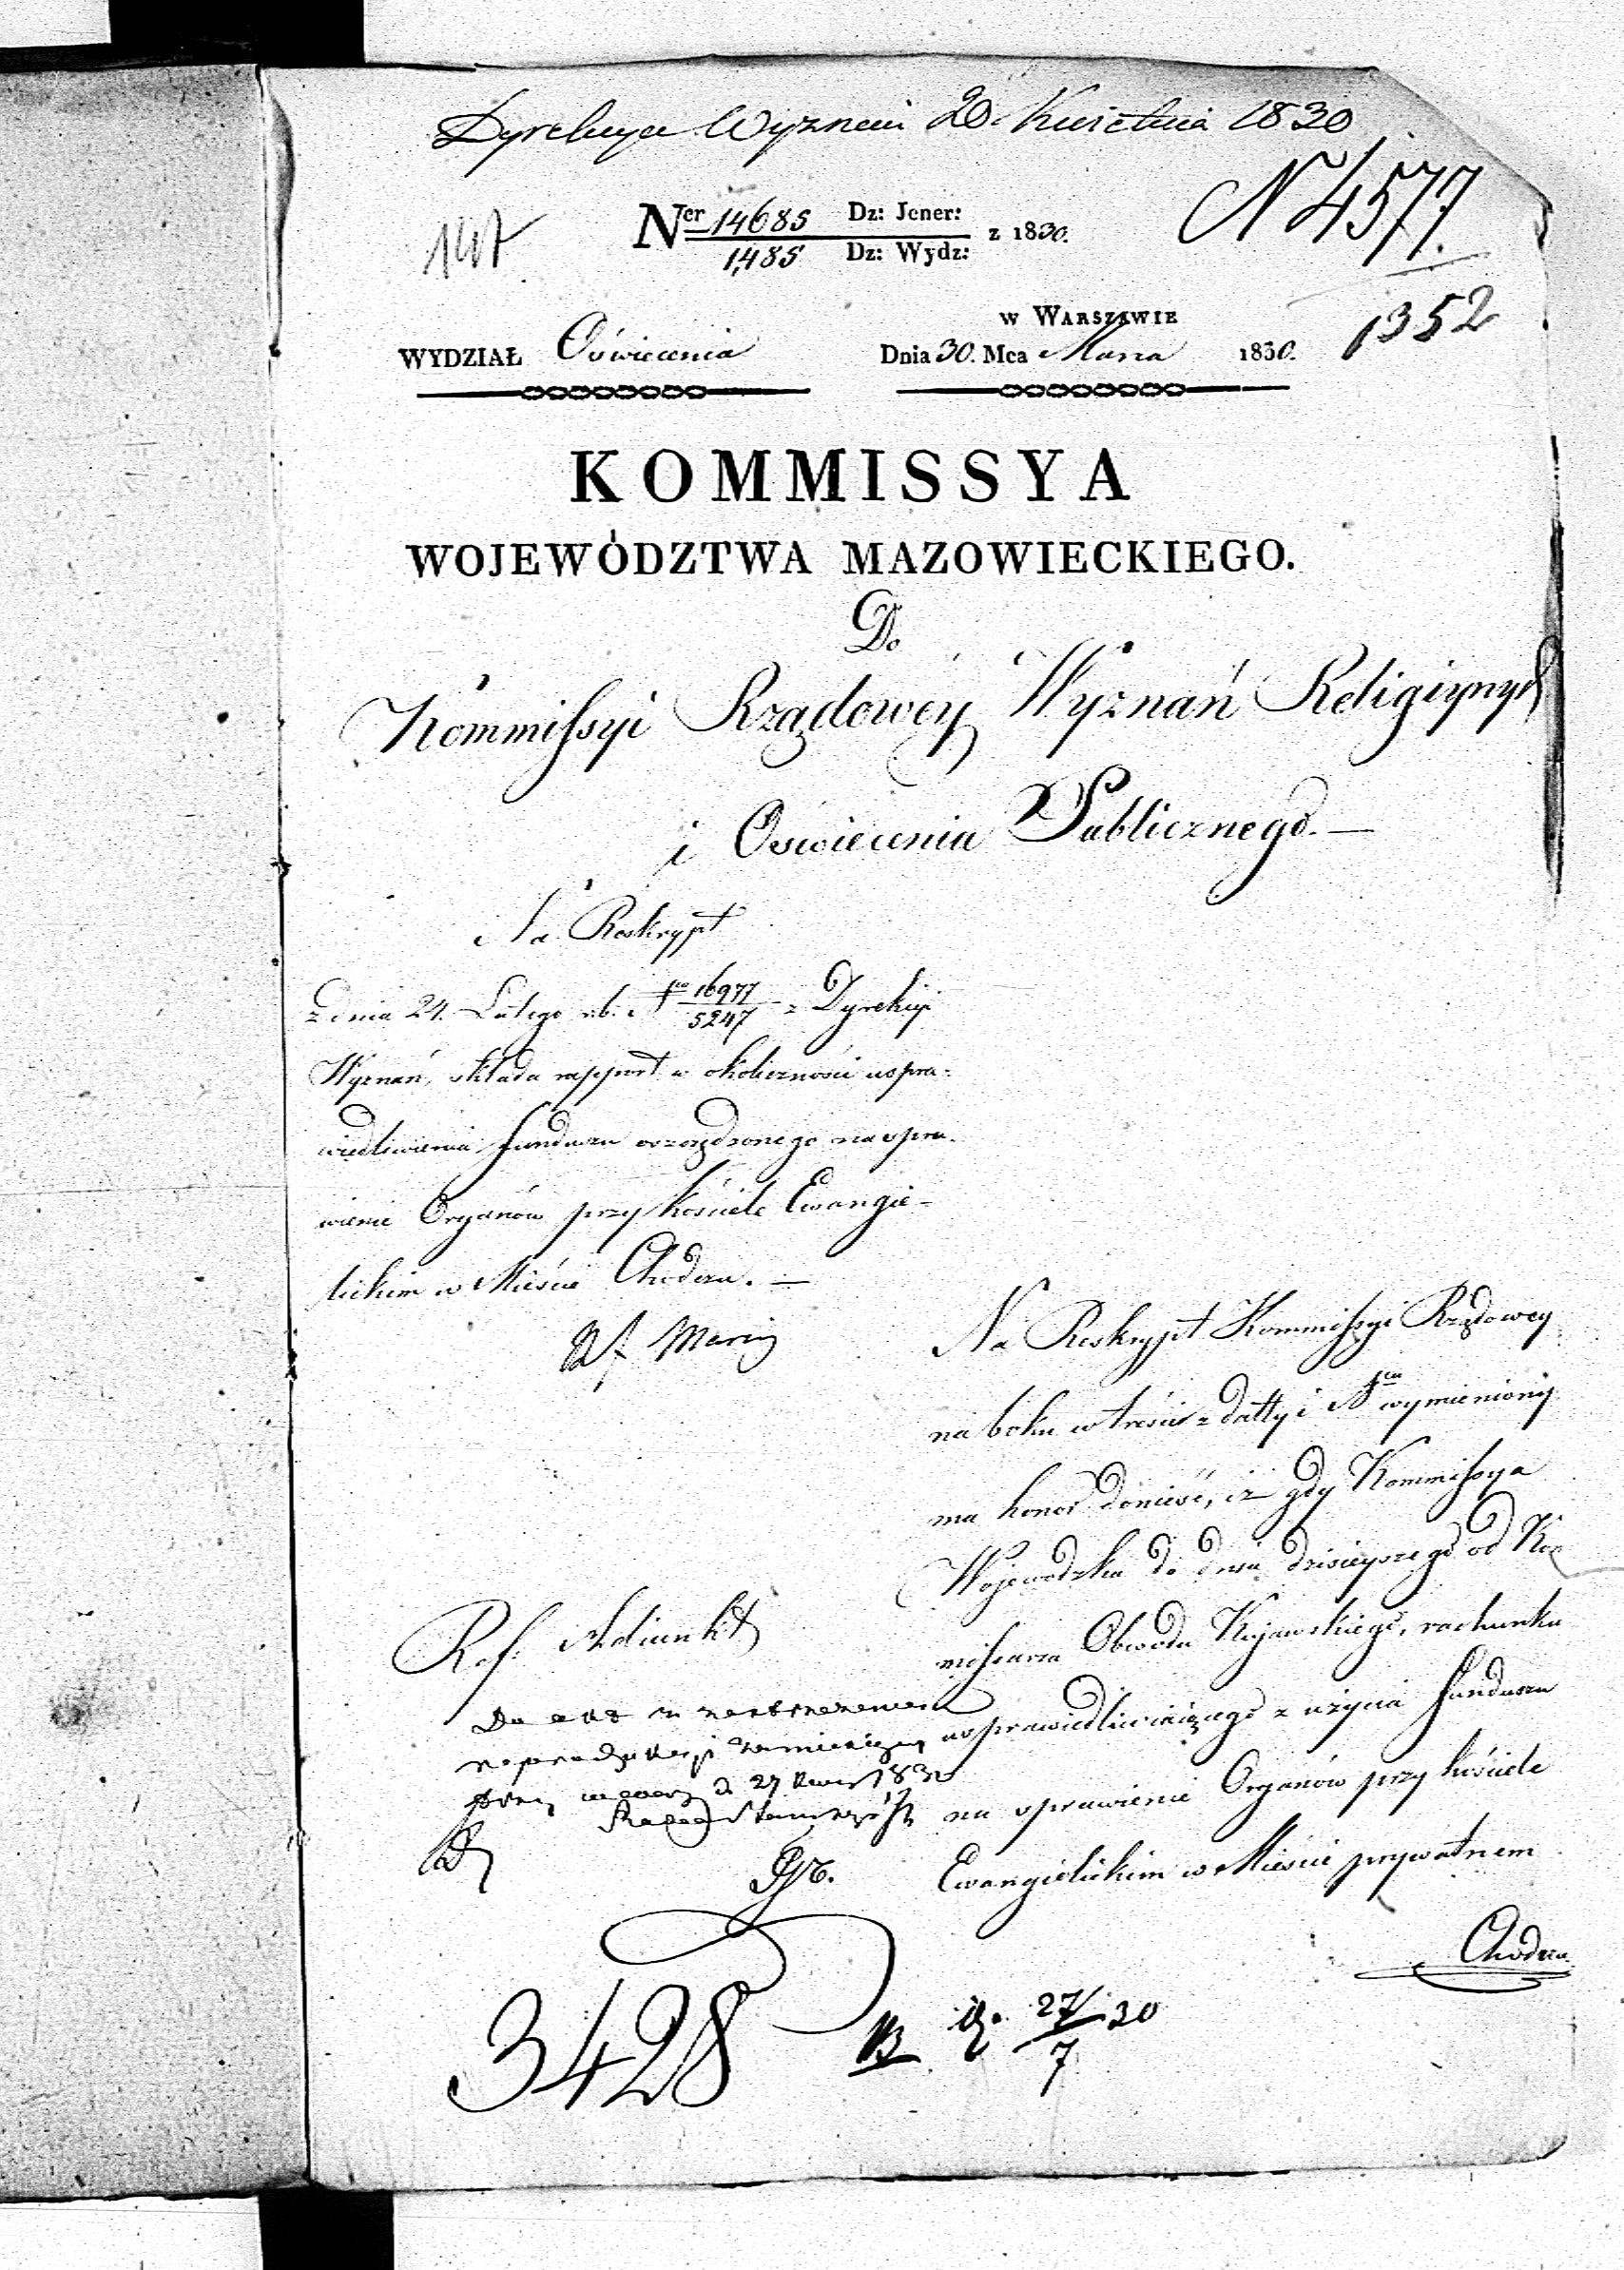 Dyrekcya Wyznań 20. Kwietnia 1830
N 4577.
147
Ner 14685 Dz: Jener: z 1830.
1,485 Dz: Wydz:
1352
w Warszawie
WYDZIAŁ Oświecenia Dnia 30. Mca Marca 1830.
KOMMISSYA
WOJEWÓDZTWA MAZOWIECKIEGO.
Do
Kommissyi Rządowey Wyznań Religiynych
i Oswiecenia Publicznego.—
Na Reskrypt
z dnia 24. Lutego r.b. Nro 16977/5247 z Dyrekcyi
Wyznań, składa rapport w okoliczności uspra-
wiedliwienia funduszu ooro̧dzonego na spra-
wienie Organów przy kościele Ewangie-
lickim w Mieście Chodczu.—
Na Reskrypt Kommissyi Rządowey
na boku w treści z datty i Nru wymieniony
ma honor donieść, iż gdy Kommissya
Wojewodzka do dnia dzisieyszego od Kom-
missarza Obwodu Kujawskiego, rachunku
usprawiedliwiaiącego z użycia funduszu
na sprawienie Organów przy kościele
Ewangielickim w Mieście prywatnem
Chodczu
Ref. Adiunkt
3428
27/7 30